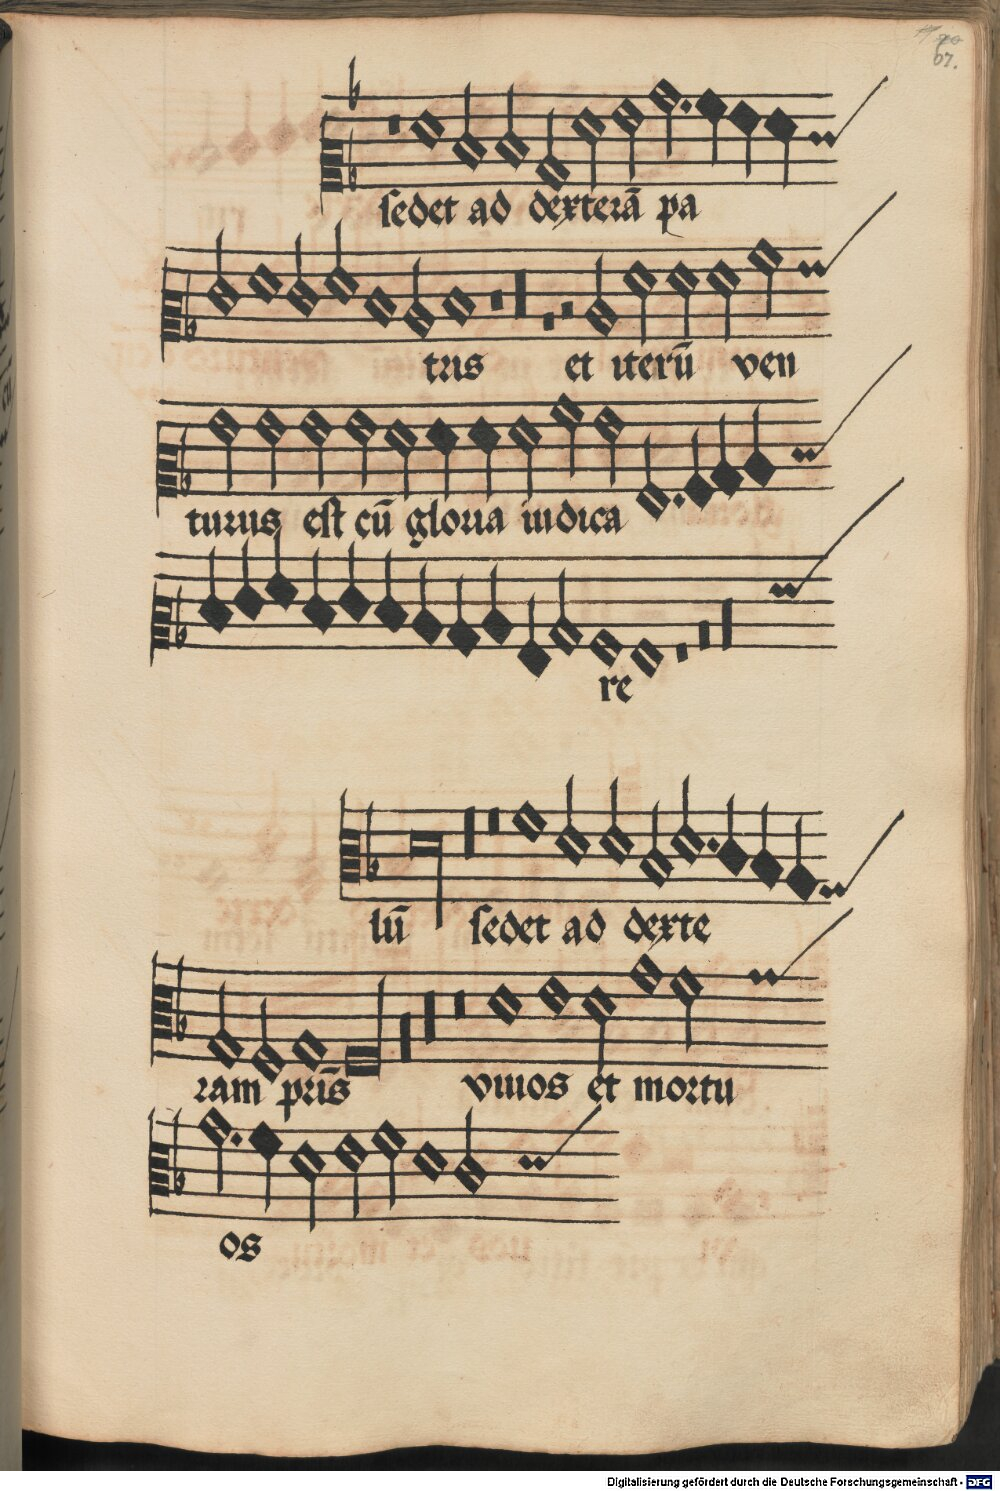 67.
sedet ad dexterā pa
tris et iterū ven
turus est cū gloria iudica
re
lū sedet ad dexte
ram pr̄is viuos et mortu
os
Digitalisierung gefördert durch die Deutsche Forschungsgemeinschaft - DFG